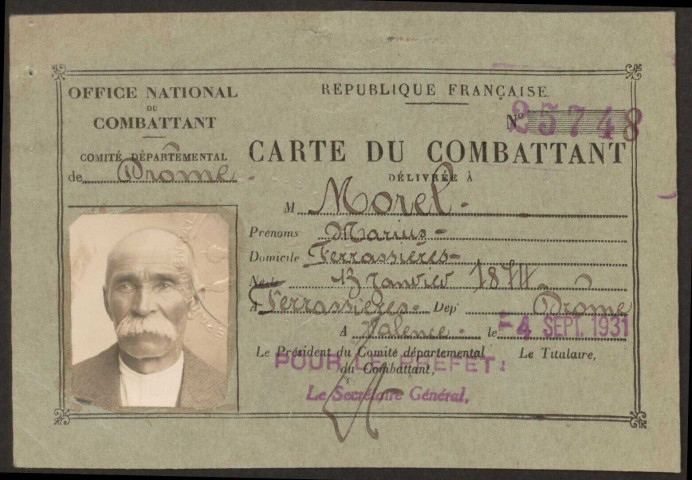 OFFICE NATIONAL
DU
COMBATTANT
COMITÉ DÉPARTEMENTAL
de Drôme
REPUBLIQUE FRANÇAISE
N° 25748
CARTE DU COMBATTANT
DÉLIVRÉE À
M Morel
Prénoms Marius
Domicile Ferrassières
Né le 13 Janvier
à Ferrassières Dept Drôme
A Valence le -4 SEPT. 1931
Le Président du Comité départemental
du Combattant,
Le Titulaire,
POUR LE PREFET:
Le Secrétaire Général,